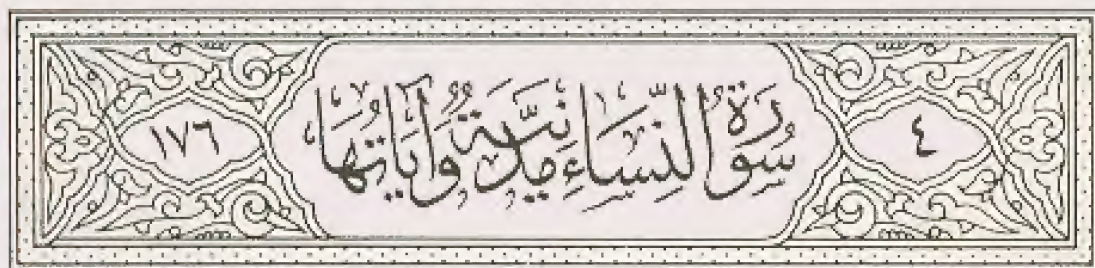 ٤
سُورَةُ النِّسَاءِ مَدَنِيَّة وَآيَاتُهَا
١٧٦